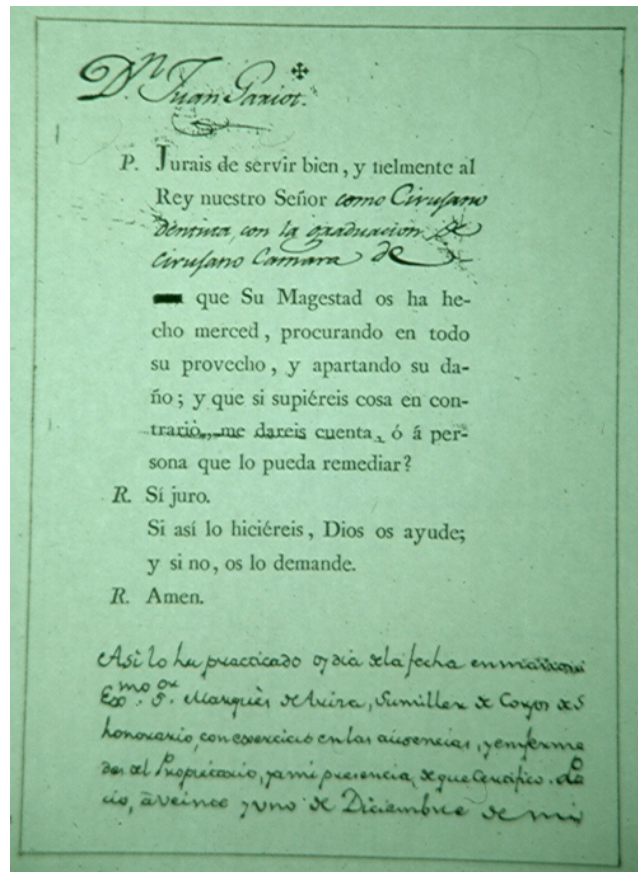 Dn. Juan Gariot.
P. Jurais de servir bien, y fielmente al
Rey nuestro Señor como Cirujano
dentista, con la graduacion de
Cirujano Camara de
que Su Magestad os ha he-
cho merced, procurando en todo
su provecho, y apartando su da-
ño; y que si supiéreis cosa en con-
trario, me dareis cuenta, ó á per-
sona que lo pueda remediar?
R. Sí juro.
Si así lo hiciéreis, Dios os ayude;
y si no, os lo demande.
R. Amen.
Asi lo ha practicado oy dia de la fecha en
Exmo. Sor. Marqués de Ariza, Sumiller de Corps de S
honorario, con exercicio en las ausencias, y enferme
des del Propietario, y a mi presencia, de que Certifico.
cio, à veinte y uno de Diciembre de mil